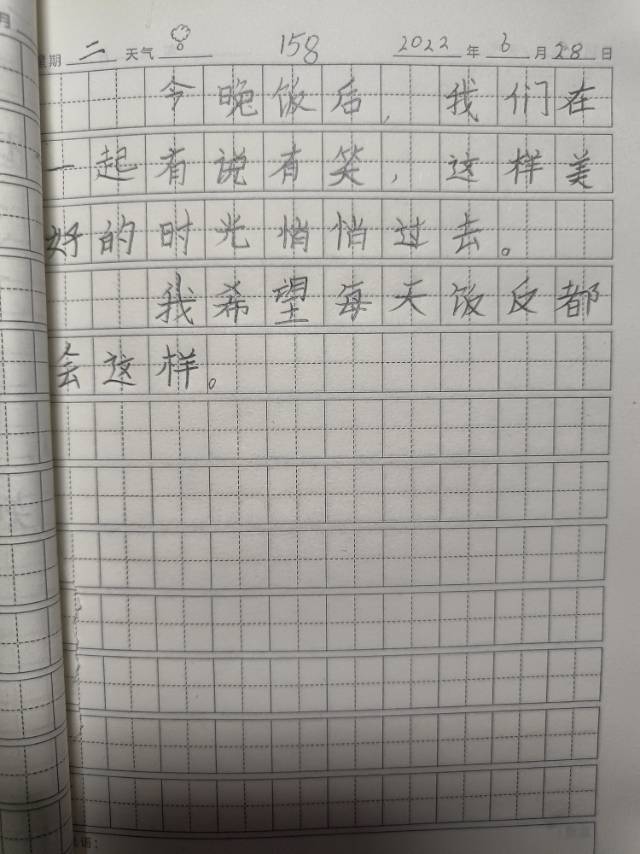 月
星期 二 天气 158 2022 年 6 月 28 日
今晚饭后，我们在
一起有说有笑，这样美
好的时光悄悄过去。
我希望每天饭反都
会这样。
语：